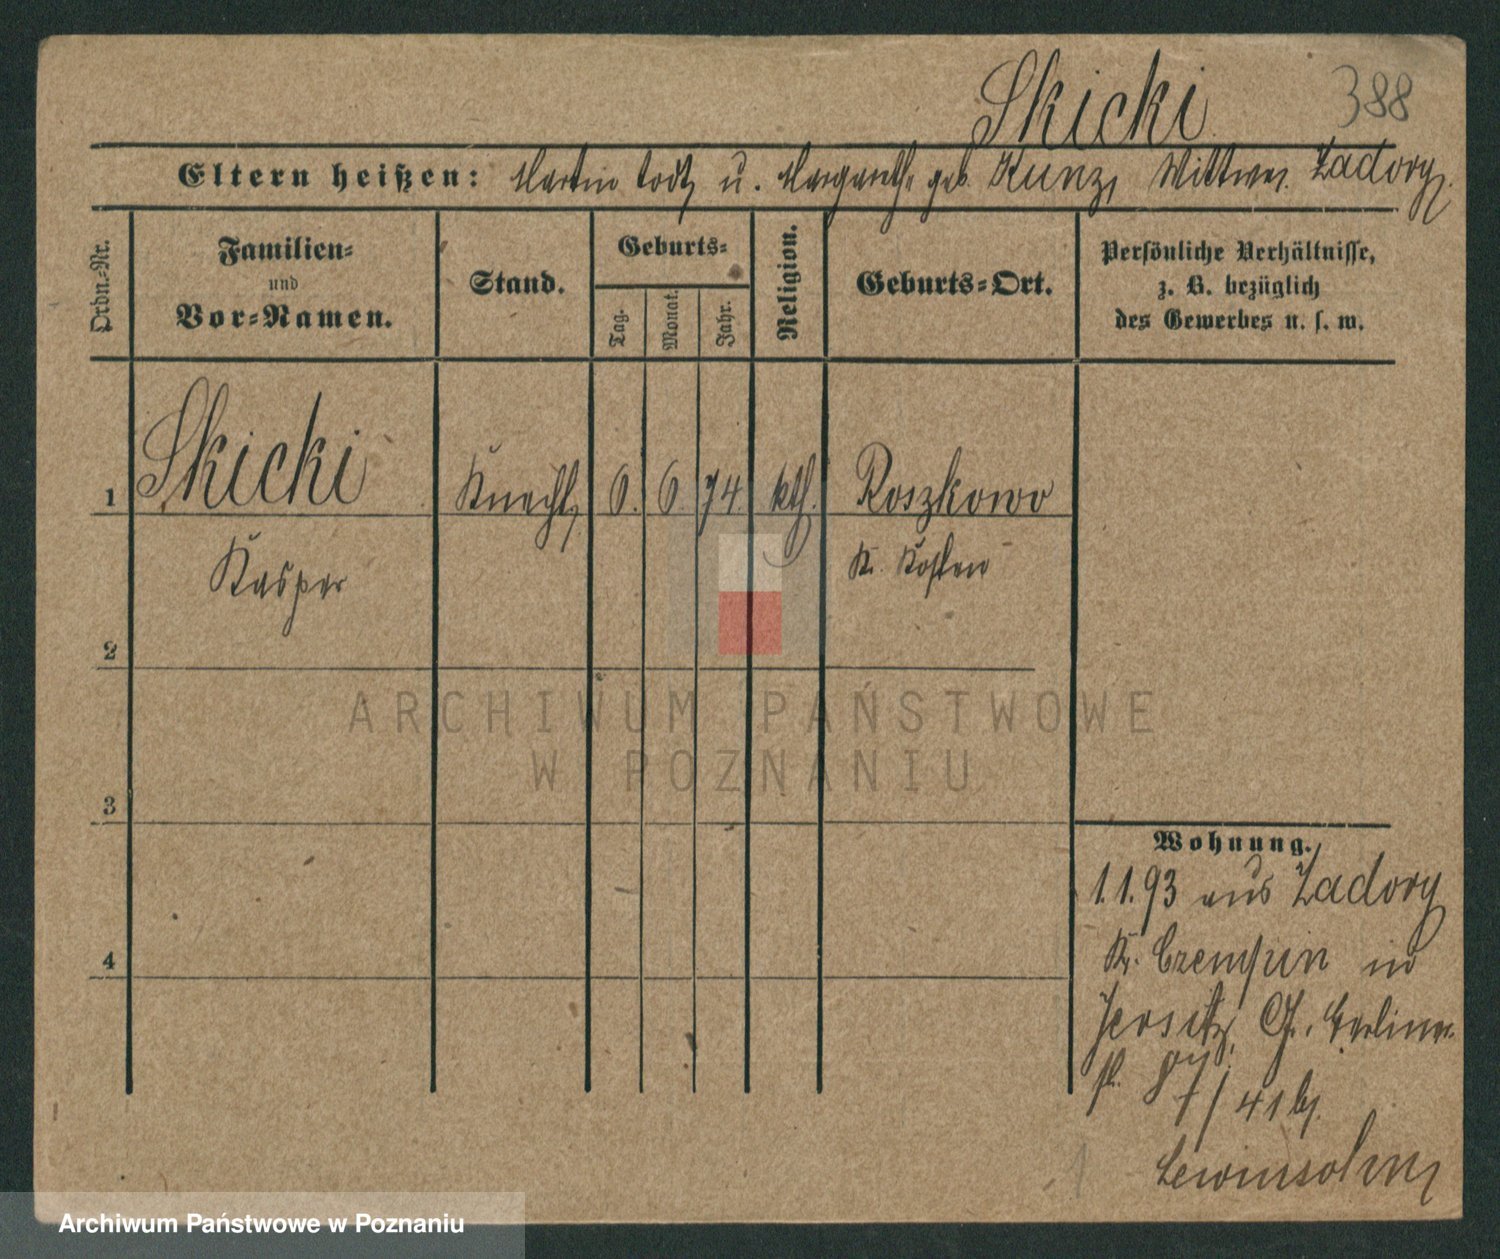 Skicki 388
Eltern heißen: Martin todt, u. Margareth, geb. Kunz, Wittwe. Zadory.
Ordn.-Nr.
Familien-
und
Vor-Namen.
Stand.
Geburts-
Tag.
Monat.
Jahr.
Religion.
Geburts-Ort.
Persönliche Verhältnisse,
z. B. bezüglich
des Gewerbes u. s. w.
1 Skicki Knecht, 6. 6. 74. kth. Roszkowo
Kasper Kr. Kosten
2
ARCHIWUM PAŃSTWOWE
W POZNANIU
3
Wohnung.
1.1.93 aus Zadory
Kr. Czempin in
Jersitz, Gr. Berliner
41 bj.
4
Lewinsohn,
Archiwum Państwowe w Poznaniu